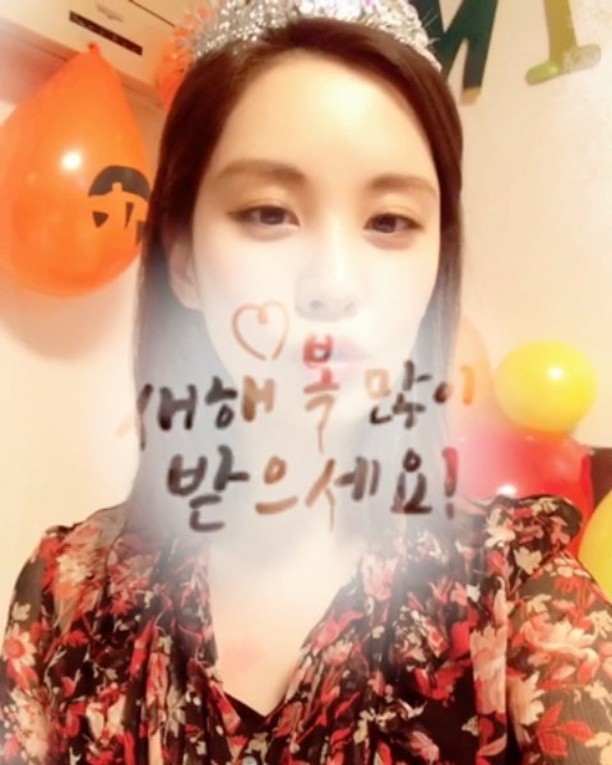 MI
새해 복 많이
받으세요!